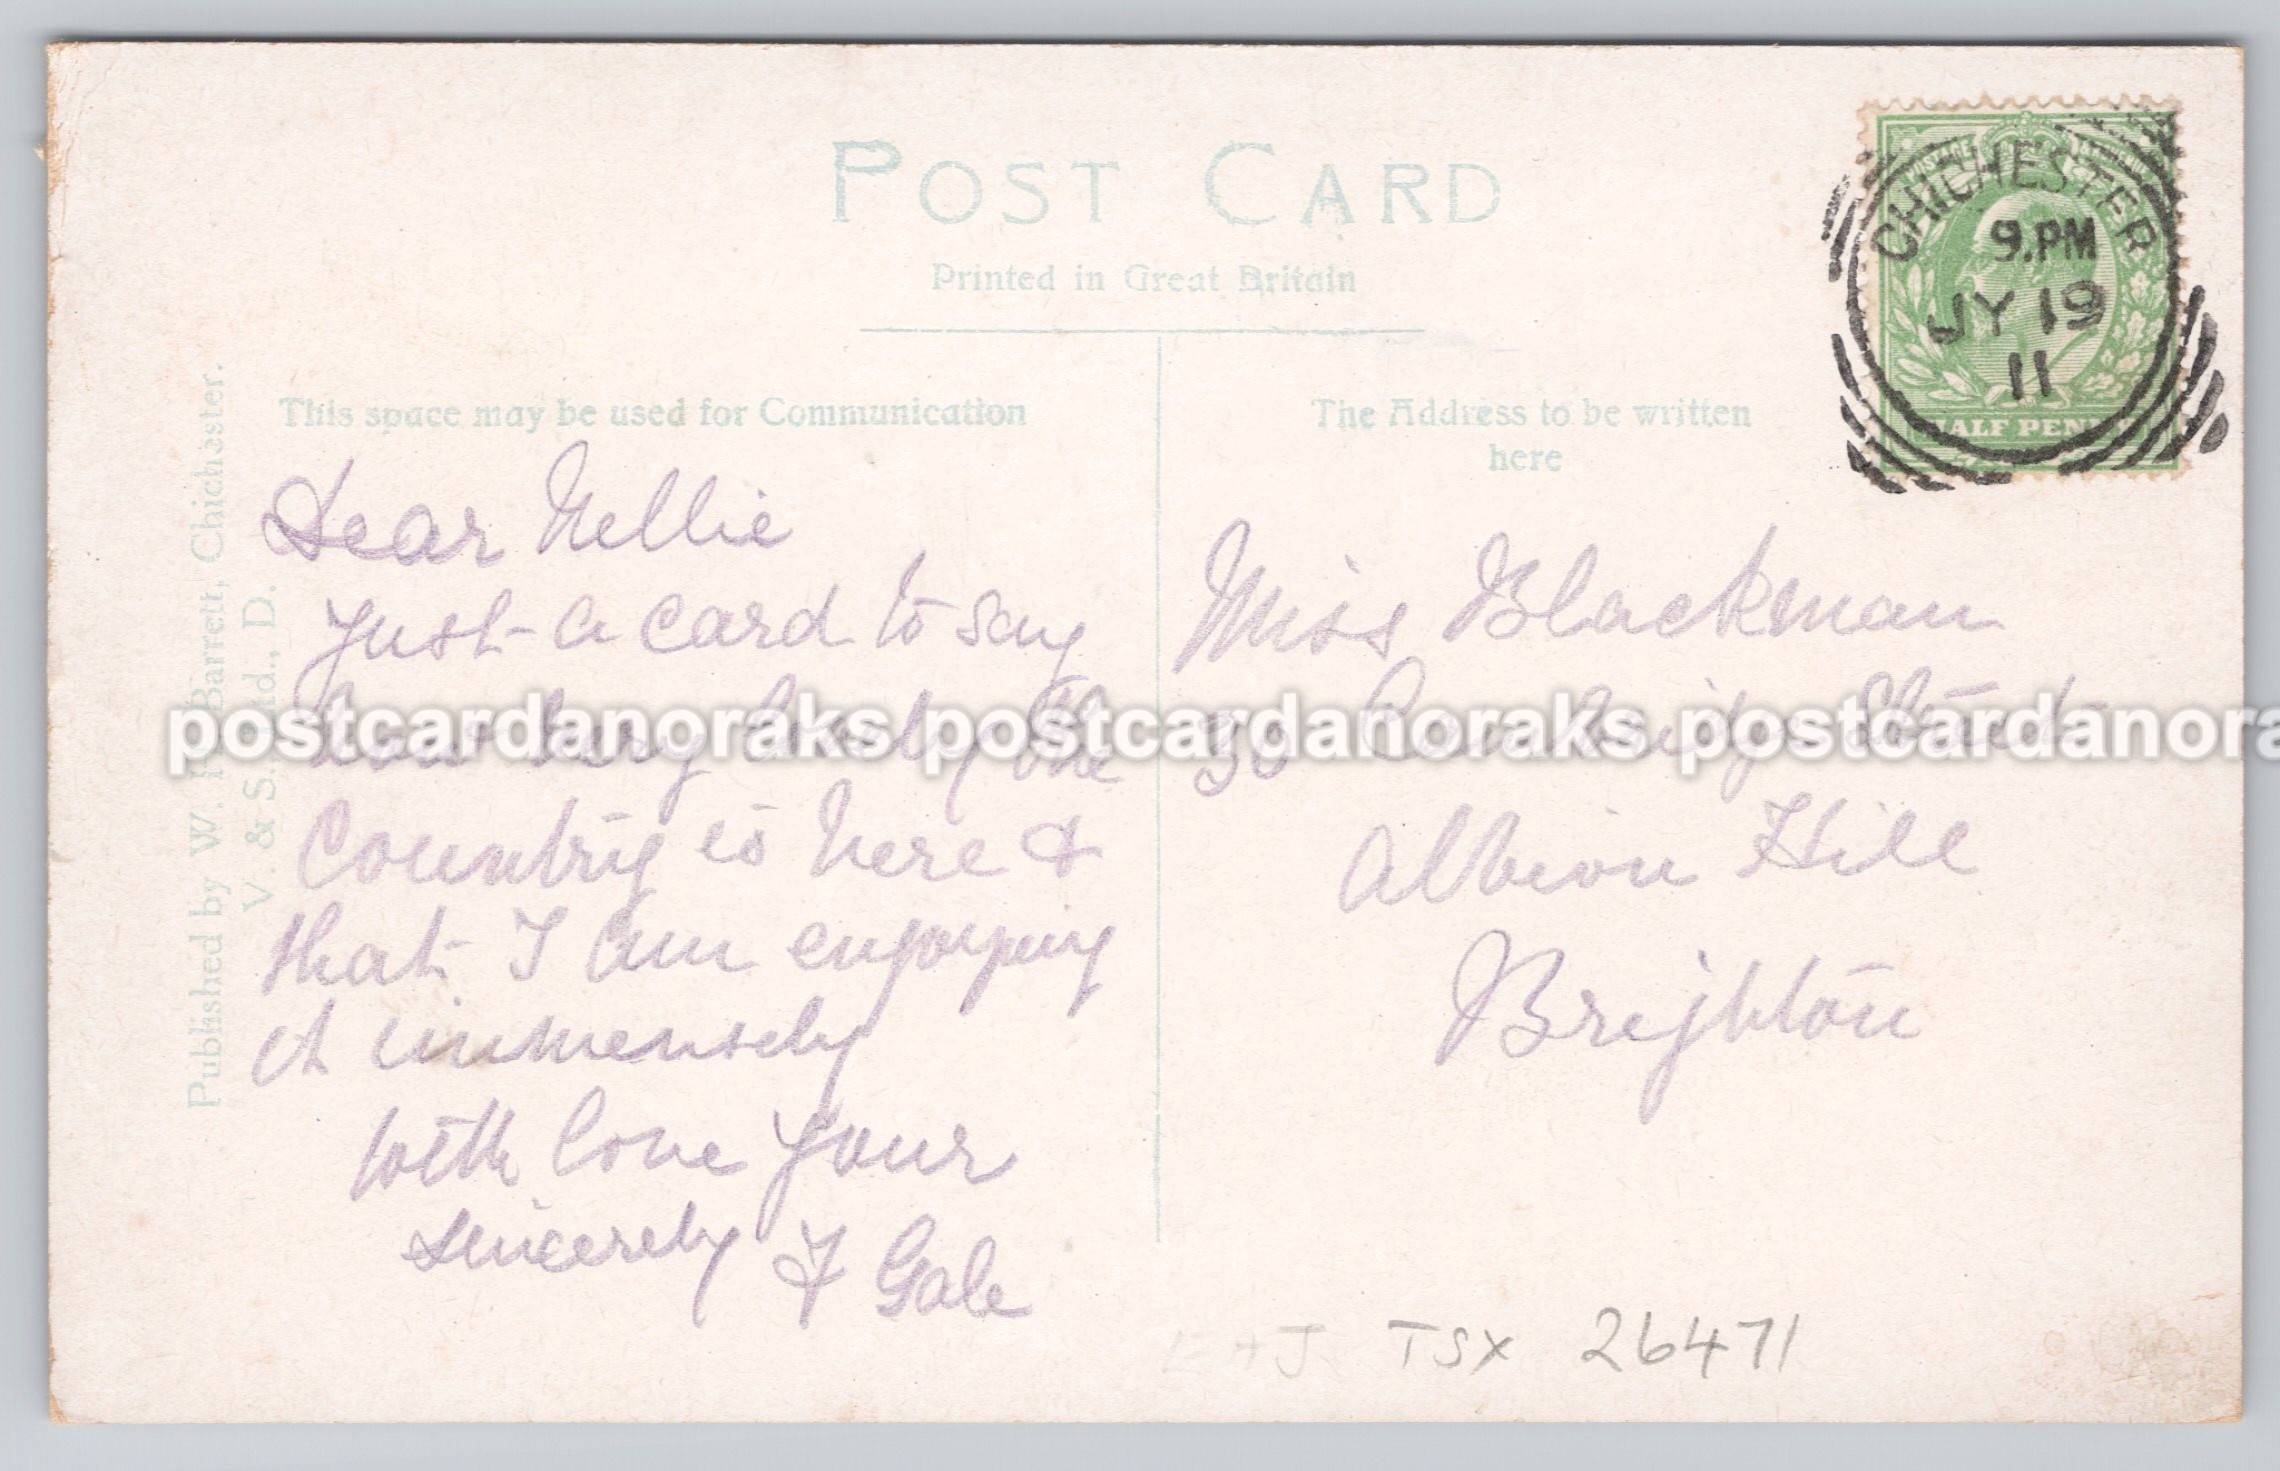 POST CARD
Printed in Great Britain
This space may be used for Communication
The Address to be written
here
CHICHESTER
9.PM
JY 19
11
HALF PENNY
Published by W. Barrett, Chichester.
V. & S. Ltd., D.
Dear Nellie
Just a card to say
how very lovely the
Country is here &
that I am enjoying
it immensely
with love your
sincerely F Gale
Miss Blackman
30 Cambridge Street
Albion Hill
Brighton
TSX 26471
postcardanoraks postcardanoraks postcardanora